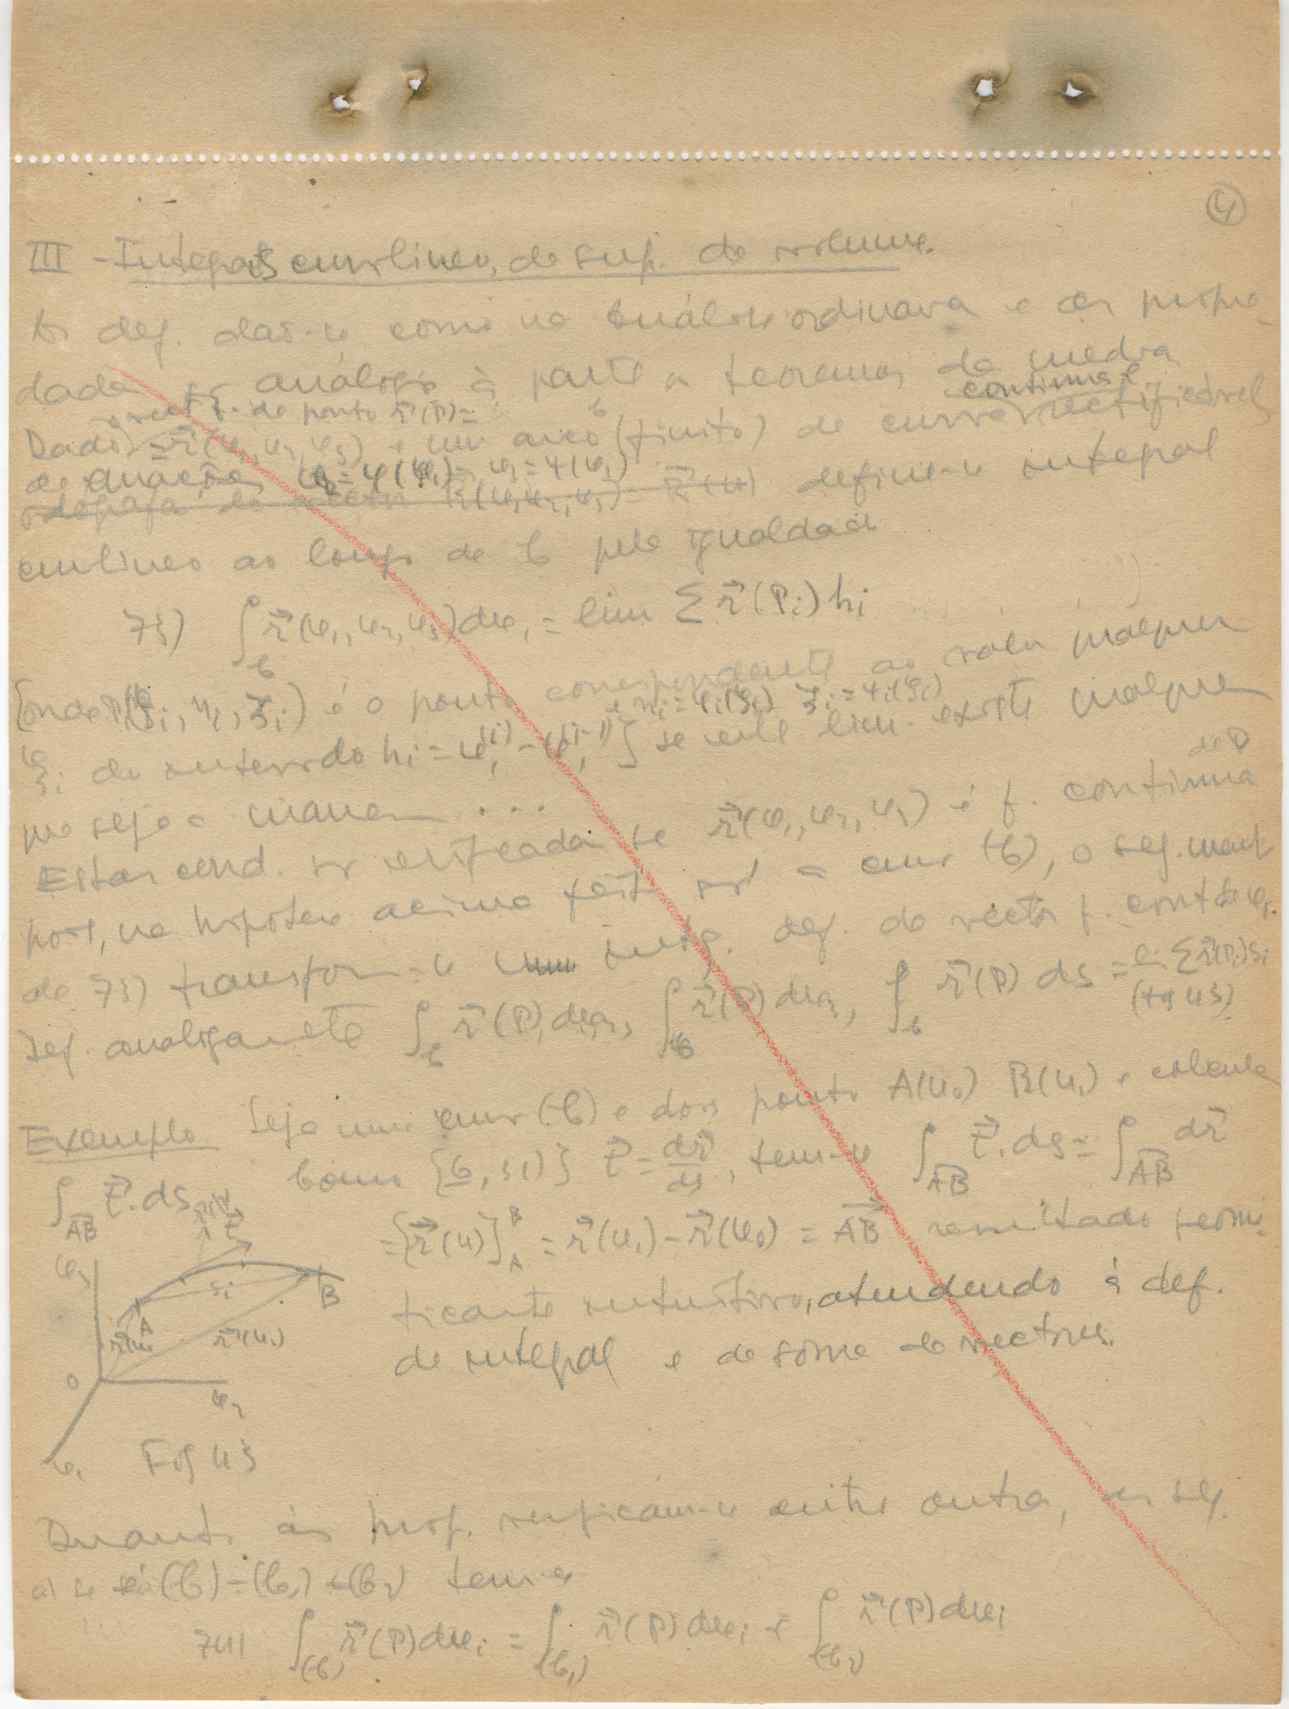 4
III - Integrais curvilíneo, de sup. de volume.
As def. dão-se como na análise ordinária e as proprie
dades análogas à parte o teorema da media
vect. f. de ponto r⃗(P)=
continua e
Dado r⃗(φ₁, φ₂, φ₃) e um arco (finito) de curva rectificável
de equações φ₂ = φ(φ₁) φ₃ = ψ(φ₁) define-se integral
curvilíneo ao longo de C pela igualdade
73) ∫_C r⃗(φ₁, φ₂, φ₃)dφ₁ = lim Σ r⃗(Pᵢ) hᵢ
{onde Pᵢ(ξᵢ, ηᵢ, ζᵢ) é o ponto correspondente ao valor qualquer
ξᵢ do intervalo hᵢ = φ₁⁽ⁱ⁾ - φ₁⁽ⁱ⁻¹⁾} se este lim. existe qualquer
que seja a maneira ...
Estas cond. verificadas se r⃗(φ₁, φ₂, φ₃) é f. continua
de P
pois, na hipótese acima feita a curv (C), o seg. memb
de 73) transforma-se integ. def. de vector f. cont. de φ₁.
Def. analogamente ∫_C r⃗(P) dφ₂, ∫_C r⃗(P) dφ₃, ∫_C r⃗(P) ds = Σ r⃗(Pᵢ)sᵢ
(fig 43)
Exemplo Seja uma curv (C) e dois pontos A(u₀) B(u₁) e calcule
∫_AB t⃗.ds Como {6, 51)} t⃗ = dr⃗/ds, tem-se ∫_AB t⃗.ds = ∫_AB dr⃗
= [r⃗(u)]_A^B = r⃗(u₁) - r⃗(u₀) = AB⃗ resultado geomé
tricamente intuitivo, atendendo à def.
de integral e de soma de vectores.
φ₃ t⃗ sᵢ A B r⃗(u₀) r⃗(u₁) 0 φ₂ φ₁
Fig 43
Quanto às prop. verificam-se entre outras, as seg.
a) se (C) = (C₁) + (C₂) tem-se
74) ∫_(C) r⃗(P)dφᵢ = ∫_(C₁) r⃗(P)dφᵢ + ∫_(C₂) r⃗(P)dφᵢ